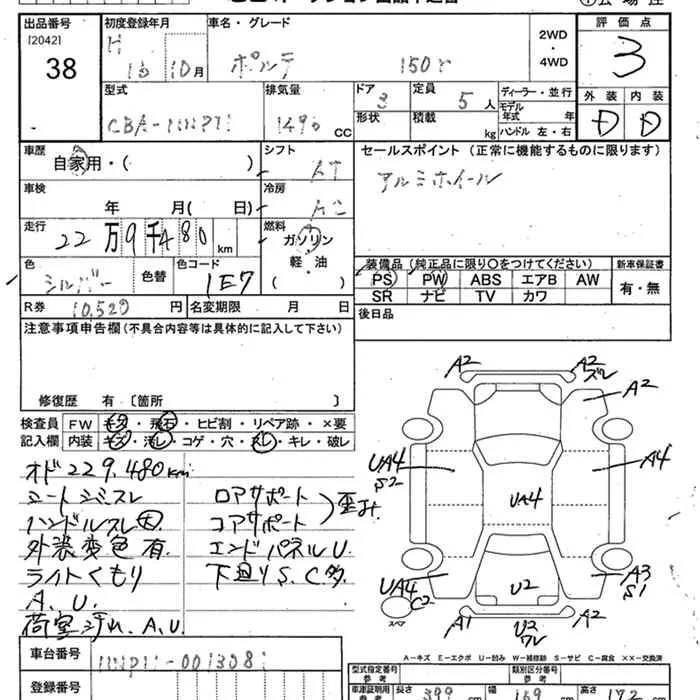 出品番号
[2042]
38
初度登録年月
H 16 10月
車名・グレード
ポルテ 150r
2WD
・
4WD
評価点
3
型式
CBA-NNP11
排気量
1490 CC
ドア
3
形状
定員
5 人
積載
kg
ディーラー・並行
モデル年式 年
ハンドル 左・右
外装 内装
D D
車歴
自家用・( )
シフト
AT
セールスポイント (正常に機能するものに限ります)
アルミホイール
車検
年 月( 日)
冷房
AC
走行
22万9千480 km
燃料
ガソリン
軽・油
( )
色
シルバー
色替
色コード
1E7
装備品 (純正品に限り○をつけてください)
PS PW ABS エアB AW
SR ナビ TV カワ
新車保証書
有・無
R券 10,520 円
名変期限 月 日
後日品
注意事項申告欄 (不具合内容等は具体的に記入して下さい)
修復歴 有 〔箇所 〕
検査員
記入欄
FW キズ・飛石・ヒビ割・リペア跡・×要
内装 キズ・汚レ・コゲ・穴・スレ・キレ・破レ
オド229,480km
シートシミスレ
ハンドルスレ大
外装変色有
ライトくもり
A、U
荷室汚れ、A、U
ロアサポート
コアサポート
歪み
エンドパネルU
下廻りS、C多
A2
A2
ズレ
A2
UA4
S2
A4
UA4
UA4
C2
A3
S1
U2
A1
U2
ワレ
A2
スペア
A-キズ E-エクボ U-凹み W-補修跡 S-サビ C-腐食 ××-交換済
車台番号
NNP11-0013081
登録番号
型式指定番号
参考
類別区分番号
参考
車庫証明用
参考
長さ 399 cm
幅 169 cm
高さ 172 cm